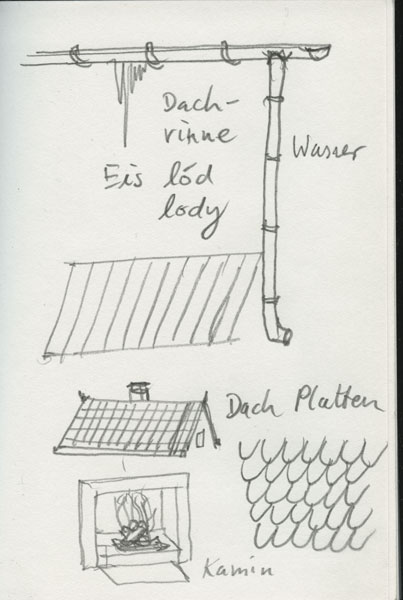 Dach-
rinne
Wasser
Eis lód
lody
Dach Platten
Kamin